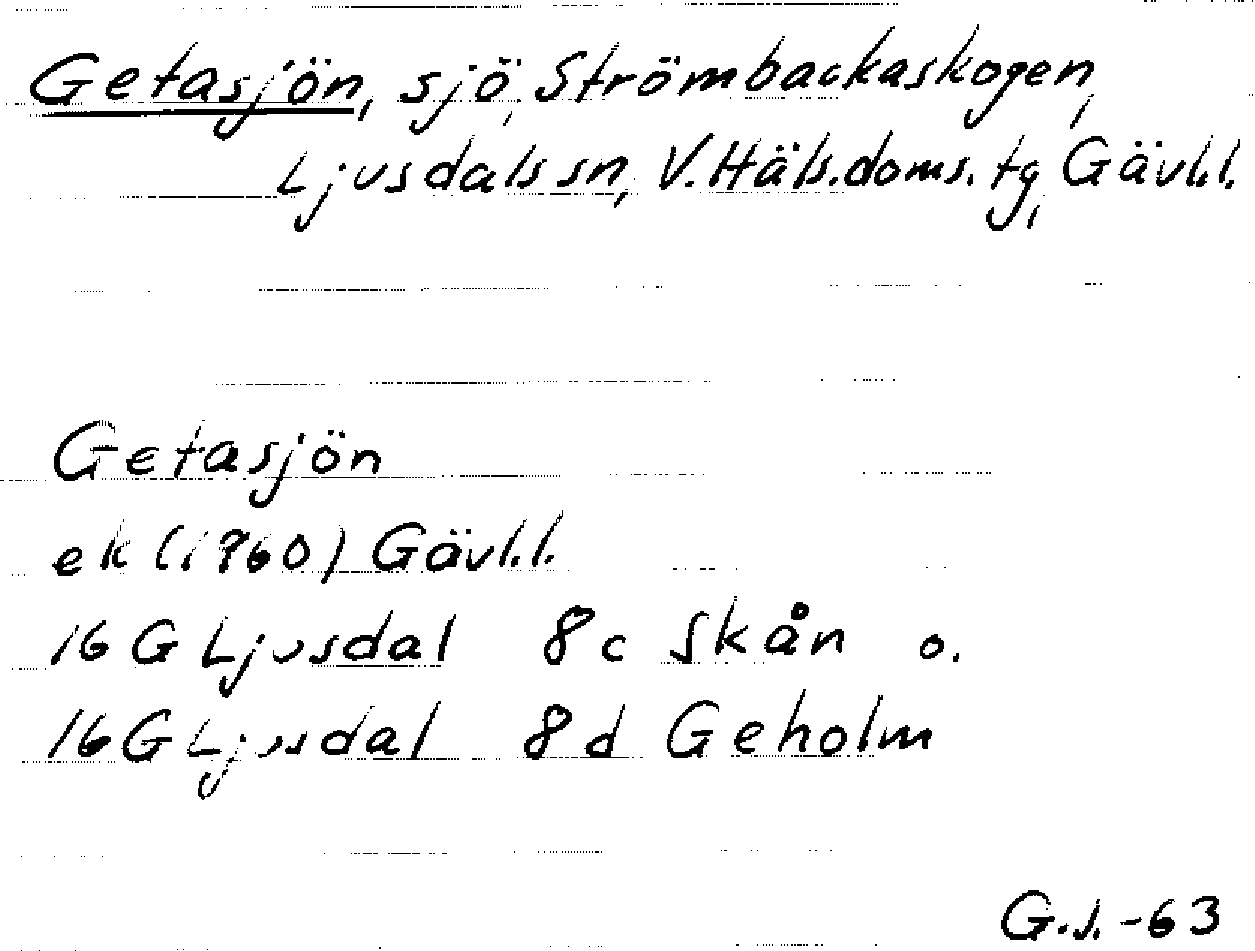 Getasjön, sjö, Strömbackaskogen,
Ljusdals sn, V. Häls. doms. tg, Gävl.l.
Getasjön
ek (1960) Gävl.l.
16 G Ljusdal 8c Skån o.
16 G Ljusdal 8d Geholm
G.J.-63